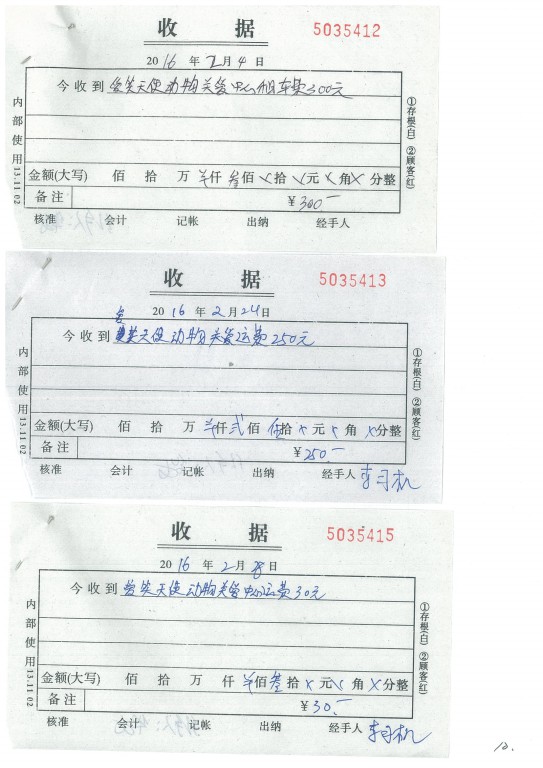 收 据
5035412
2016 年 2 月 4 日
今收到 天使动物关管中心租车费300元
金额(大写) 佰 拾 万 仟 叁佰 拾 元 角 分整
备注 ¥300-
核准 会计 记帐 出纳 经手人
内部使用 13.11 02
①存根(白) ②顾客(红)
收 据
5035413
2016 年 2 月 24 日
今收到 笑天使动物关管运费250元
金额(大写) 佰 拾 万 仟 贰佰 伍拾 元 角 分整
备注 ¥250.-
核准 会计 记帐 出纳 经手人 李司机
内部使用 13.11 02
①存根(白) ②顾客(红)
收 据
5035415
2016 年 2 月 28 日
今收到 笑天使动物关管中心运费30元
金额(大写) 佰 拾 万 仟 佰 叁拾 元 角 分整
备注 ¥30.-
核准 会计 记帐 出纳 经手人 李司机
内部使用 13.11 02
①存根(白) ②顾客(红)